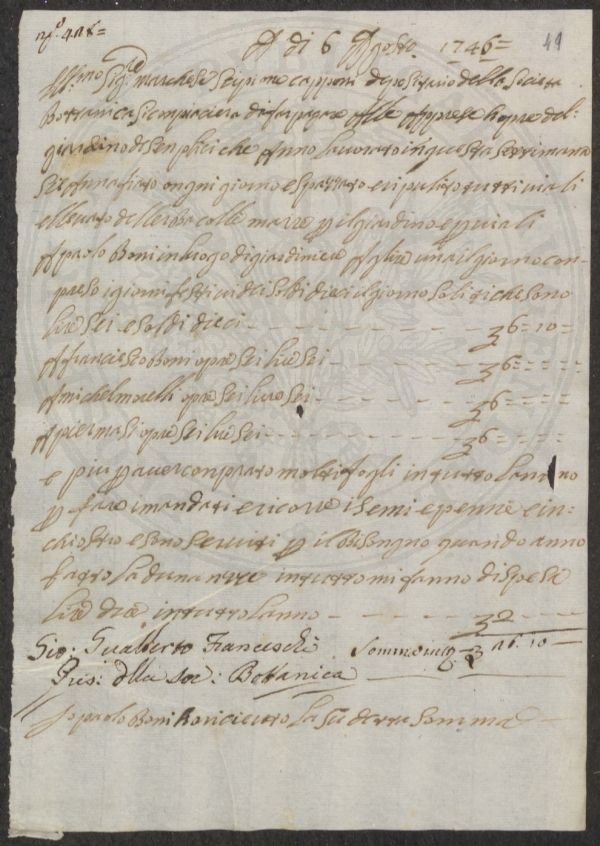 A di 6 Agosto 1746 =
49
Ill.mo Sig.re Marchese Scipione Capponi depositario della Società
Bottanica si compiacerà di far pagare alle apprese hopre del
giardino de senplici che Anno lavorato in questa settimana
Per Annafiato ongni giorno e spazzato e ripulito tutti i viali
e levato dell erba colle marre p il giardino e p i viali
A paolo Boni in luogo di giardiniere A lire una il giorno con
preso i giorni festivi di soldi dieci il giorno soliti che sono
lire sei e soldi dieci - - - - - 6 = 10 =
A francesco Boni opre sei lire sei - - - - 6 = = = =
A michel morelli opre sei lire sei - - - - 6 = = = =
A pier masi opre sei lire sei - - - - 6 = = = =
e piu p aver conprato molti fogli in tutto lanno
p fare i mandati e ricorre i semi e penne e in=
chiostro e sono serviti p il bisongno quando anno
fatto la dunanze in tutto mi fanno di spesa
lire due in tutto lanno - - - - 2
Gio: Gualberto Franceschi Sommano 26. 10 =
Pris: dlla Soc: Bottanica
Io paolo Boni ho riceuto la su detta somma